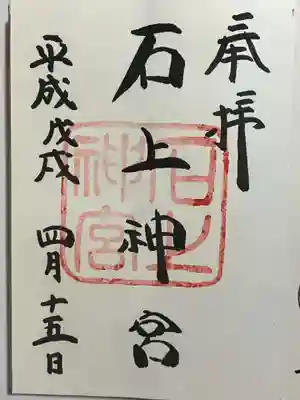 奉拝
石上神宮
平成戊戌 四月十五日
石上
神宮